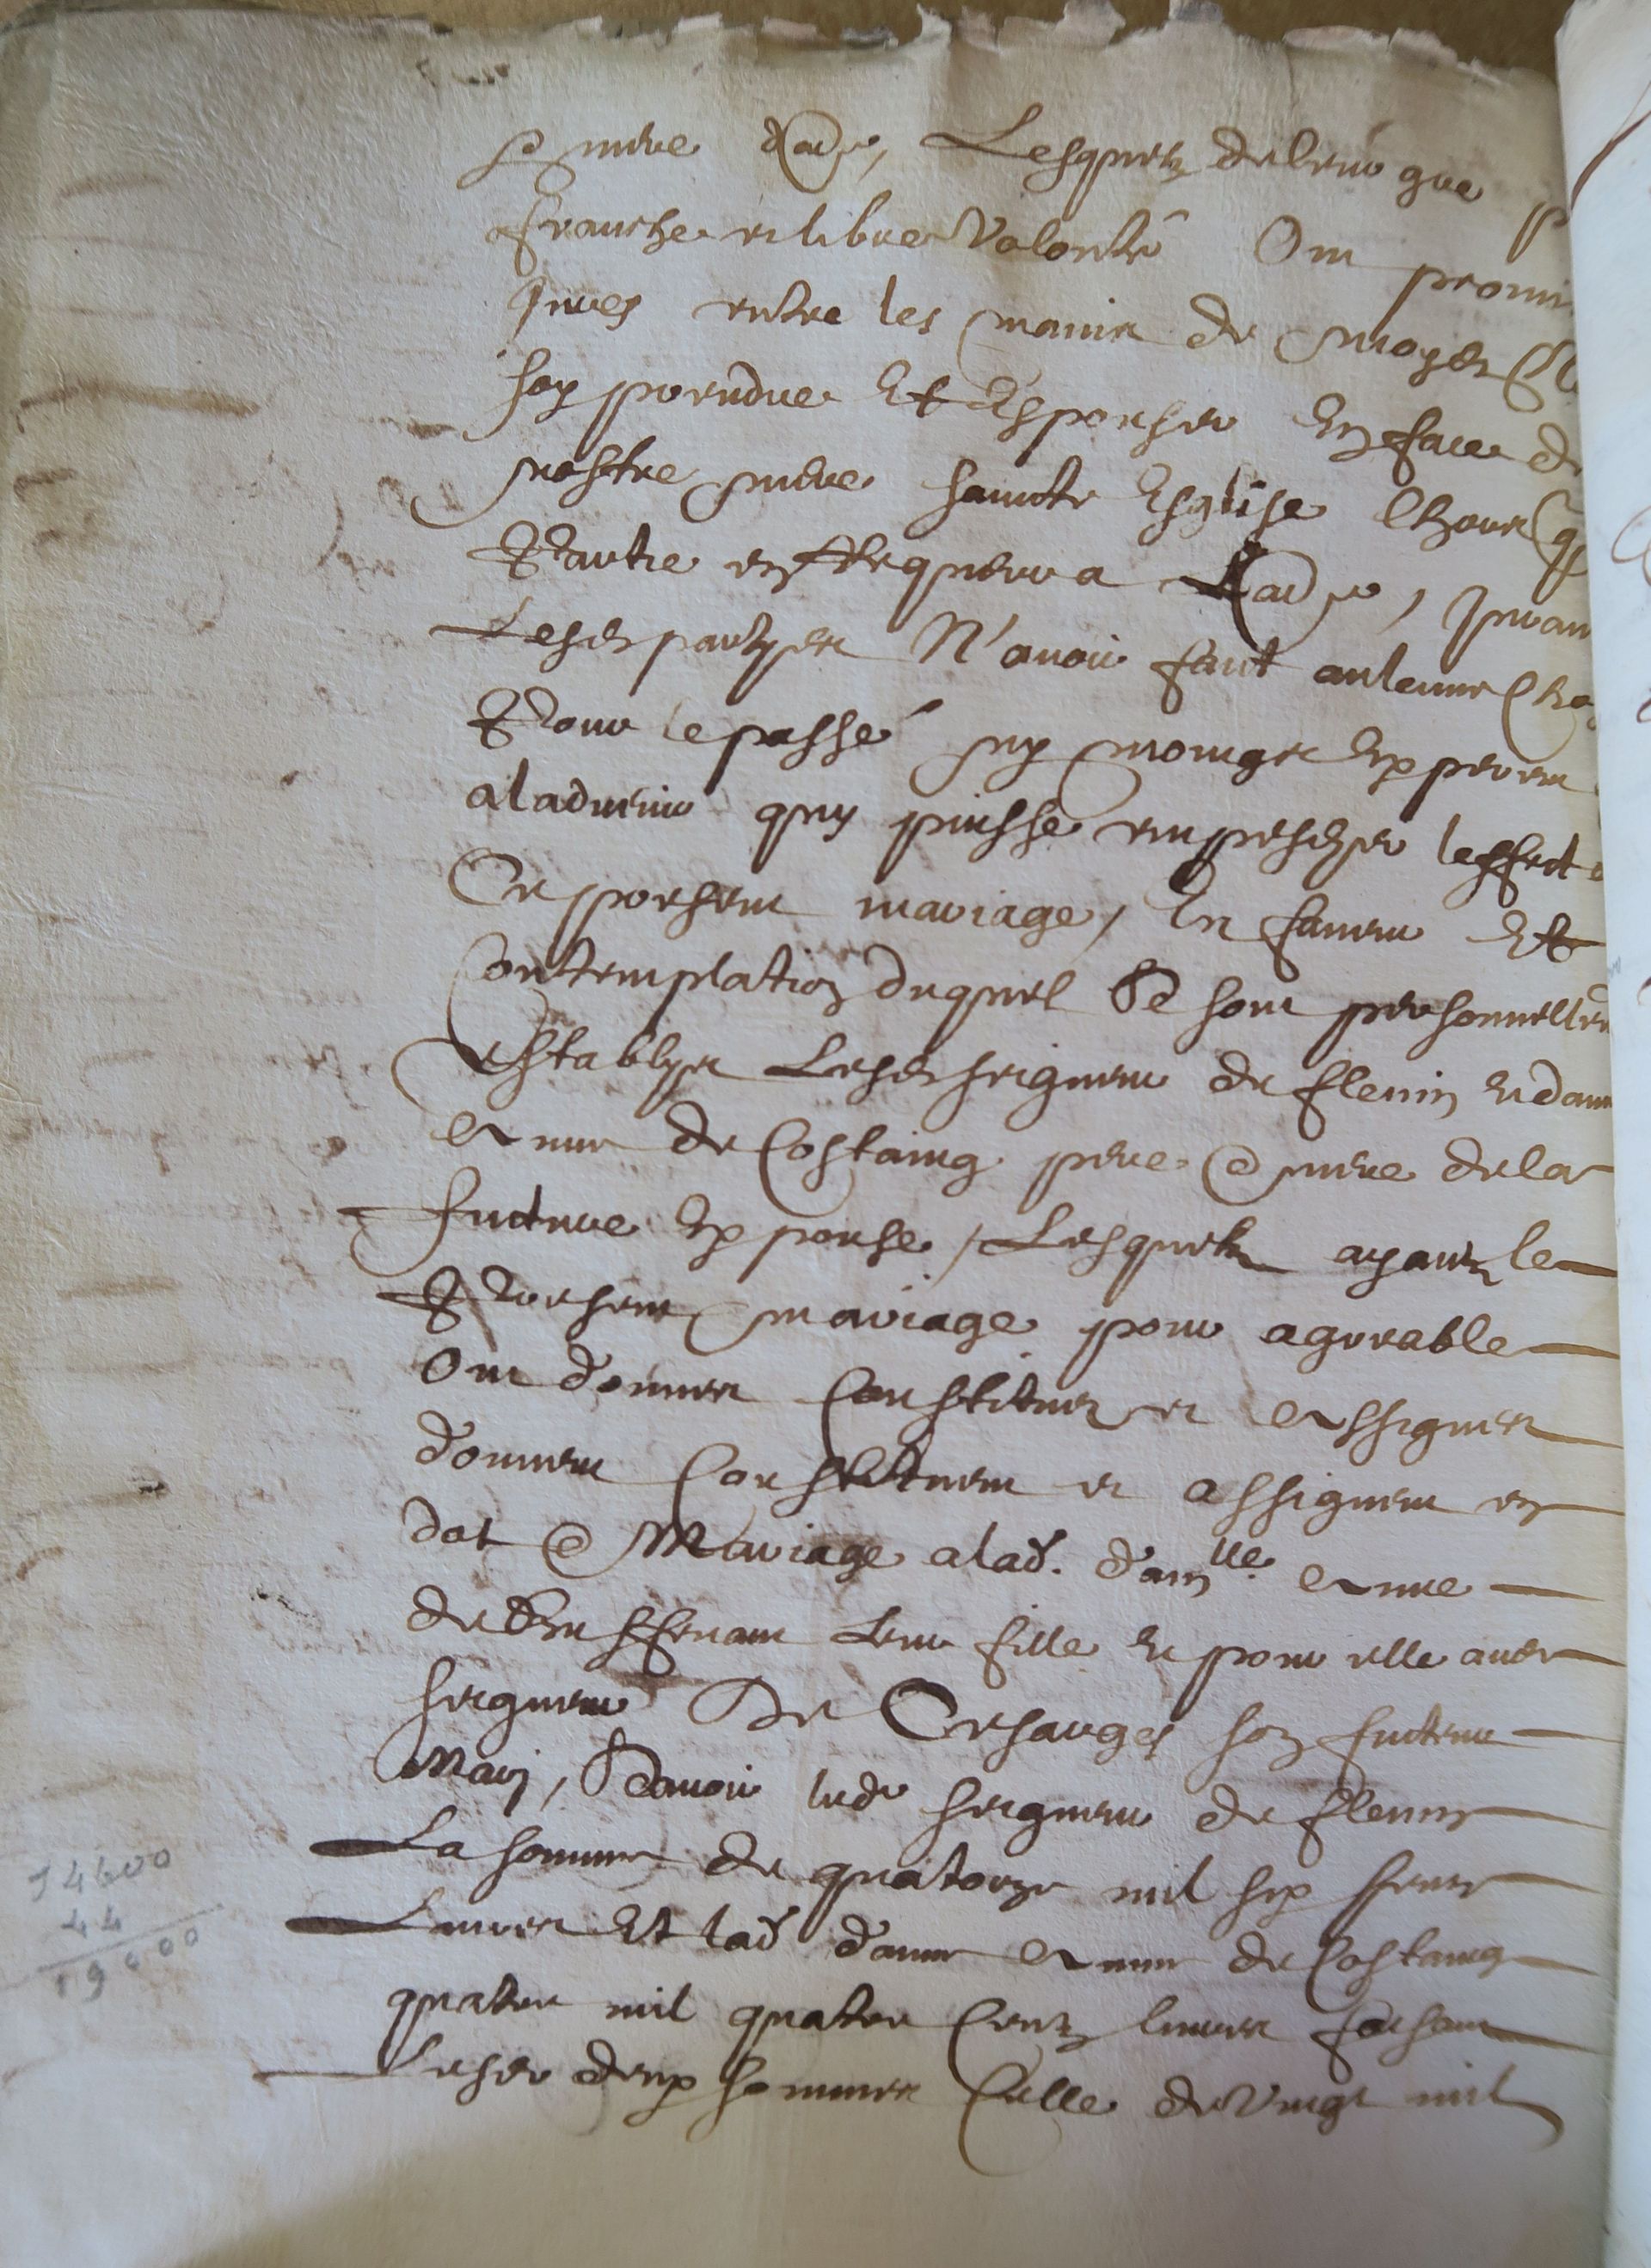 sa mere d'autre, Lesquelz de leur gre p
franche et libre Volonté Ont promis
Jures entre les mains de moyd
soy prendre Et Espouser En face d
nostre mere saincte Esglise lhors q
Partie en Requerra Laultre, Jurans
Lesd parties N'avoir faict aulcune cho
Pour le passé ny moings Experent
a ladvenir quy puisse empescher leffect
Ce present mariage, En faveur Et
Contemplation duquel Se sont personnellem
establys Lesd seigneur de flevin et dam
Anne de Costaing pere et mere de la
future Expouse, Lesquelz ayantz le
Present mariage pour agreable
Ont donnes Constitues et Assignes
donnent Constituent et assignent en
dot et Mariage a lad. dam.lle Anne
de Bressenam Leur fille et pour elle aud
seigneur De Cesarges son futeur
Mary, Scavoir led seigneur de flevin
La somme de quatorze mil six centz
Livres Et lad dame Anne de Costaing
quatre mil quatre Centz livres faisant
Lesd deux sommes Celle de Vingt mil
14600
44
19000